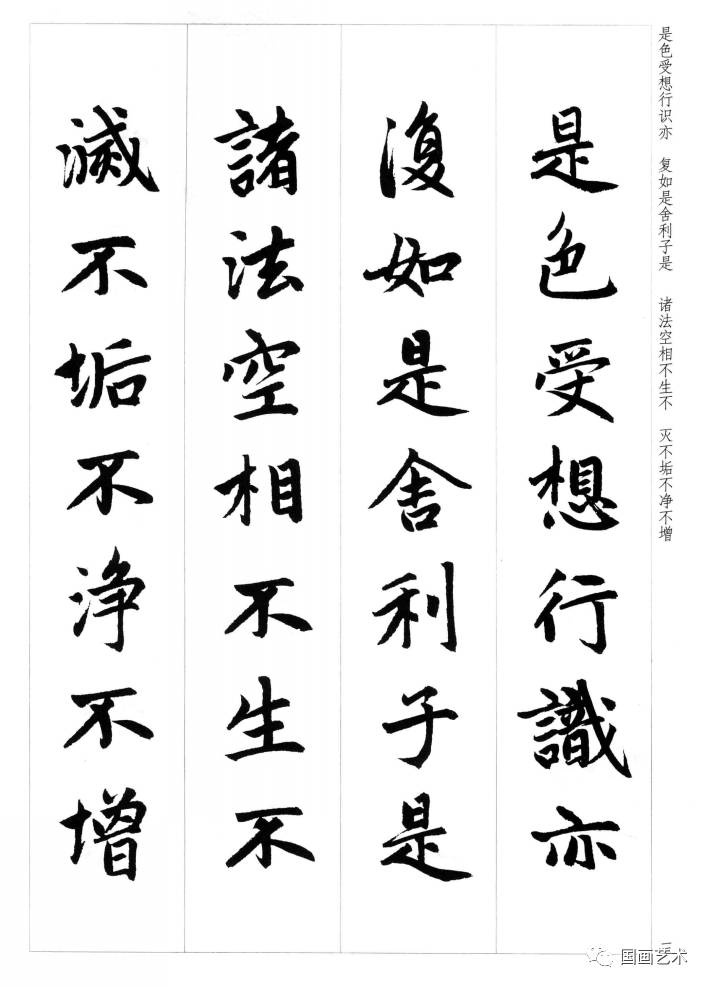 是色受想行識亦
復如是舍利子是
諸法空相不生不
滅不垢不浄不增
是色受想行识亦 复如是舍利子是 诸法空相不生不 灭不垢不净不增
国画艺术